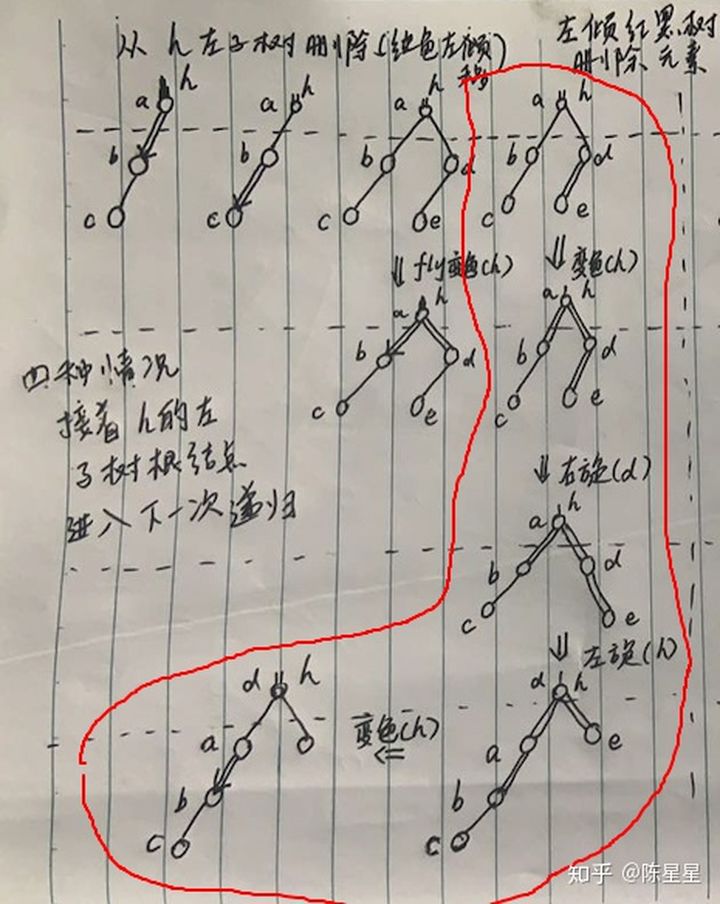 从 h 左子树删除(红色左倾
移)
左倾红黑树
删除元素
a h
b
c
a h
b
c
a h
b d
c e
a h
b d
c e
⇓ fly变色(h)
⇓ 变色(h)
a h
b d
c e
a h
b d
c e
四种情况
接着 h 的左
子树根结点
进入下一次递归
⇓ 右旋(d)
a h
b d
c e
⇓ 左旋(h)
d h
a
b
c
变色(h)
⇐
d h
a e
b
c
知乎 @陈星星